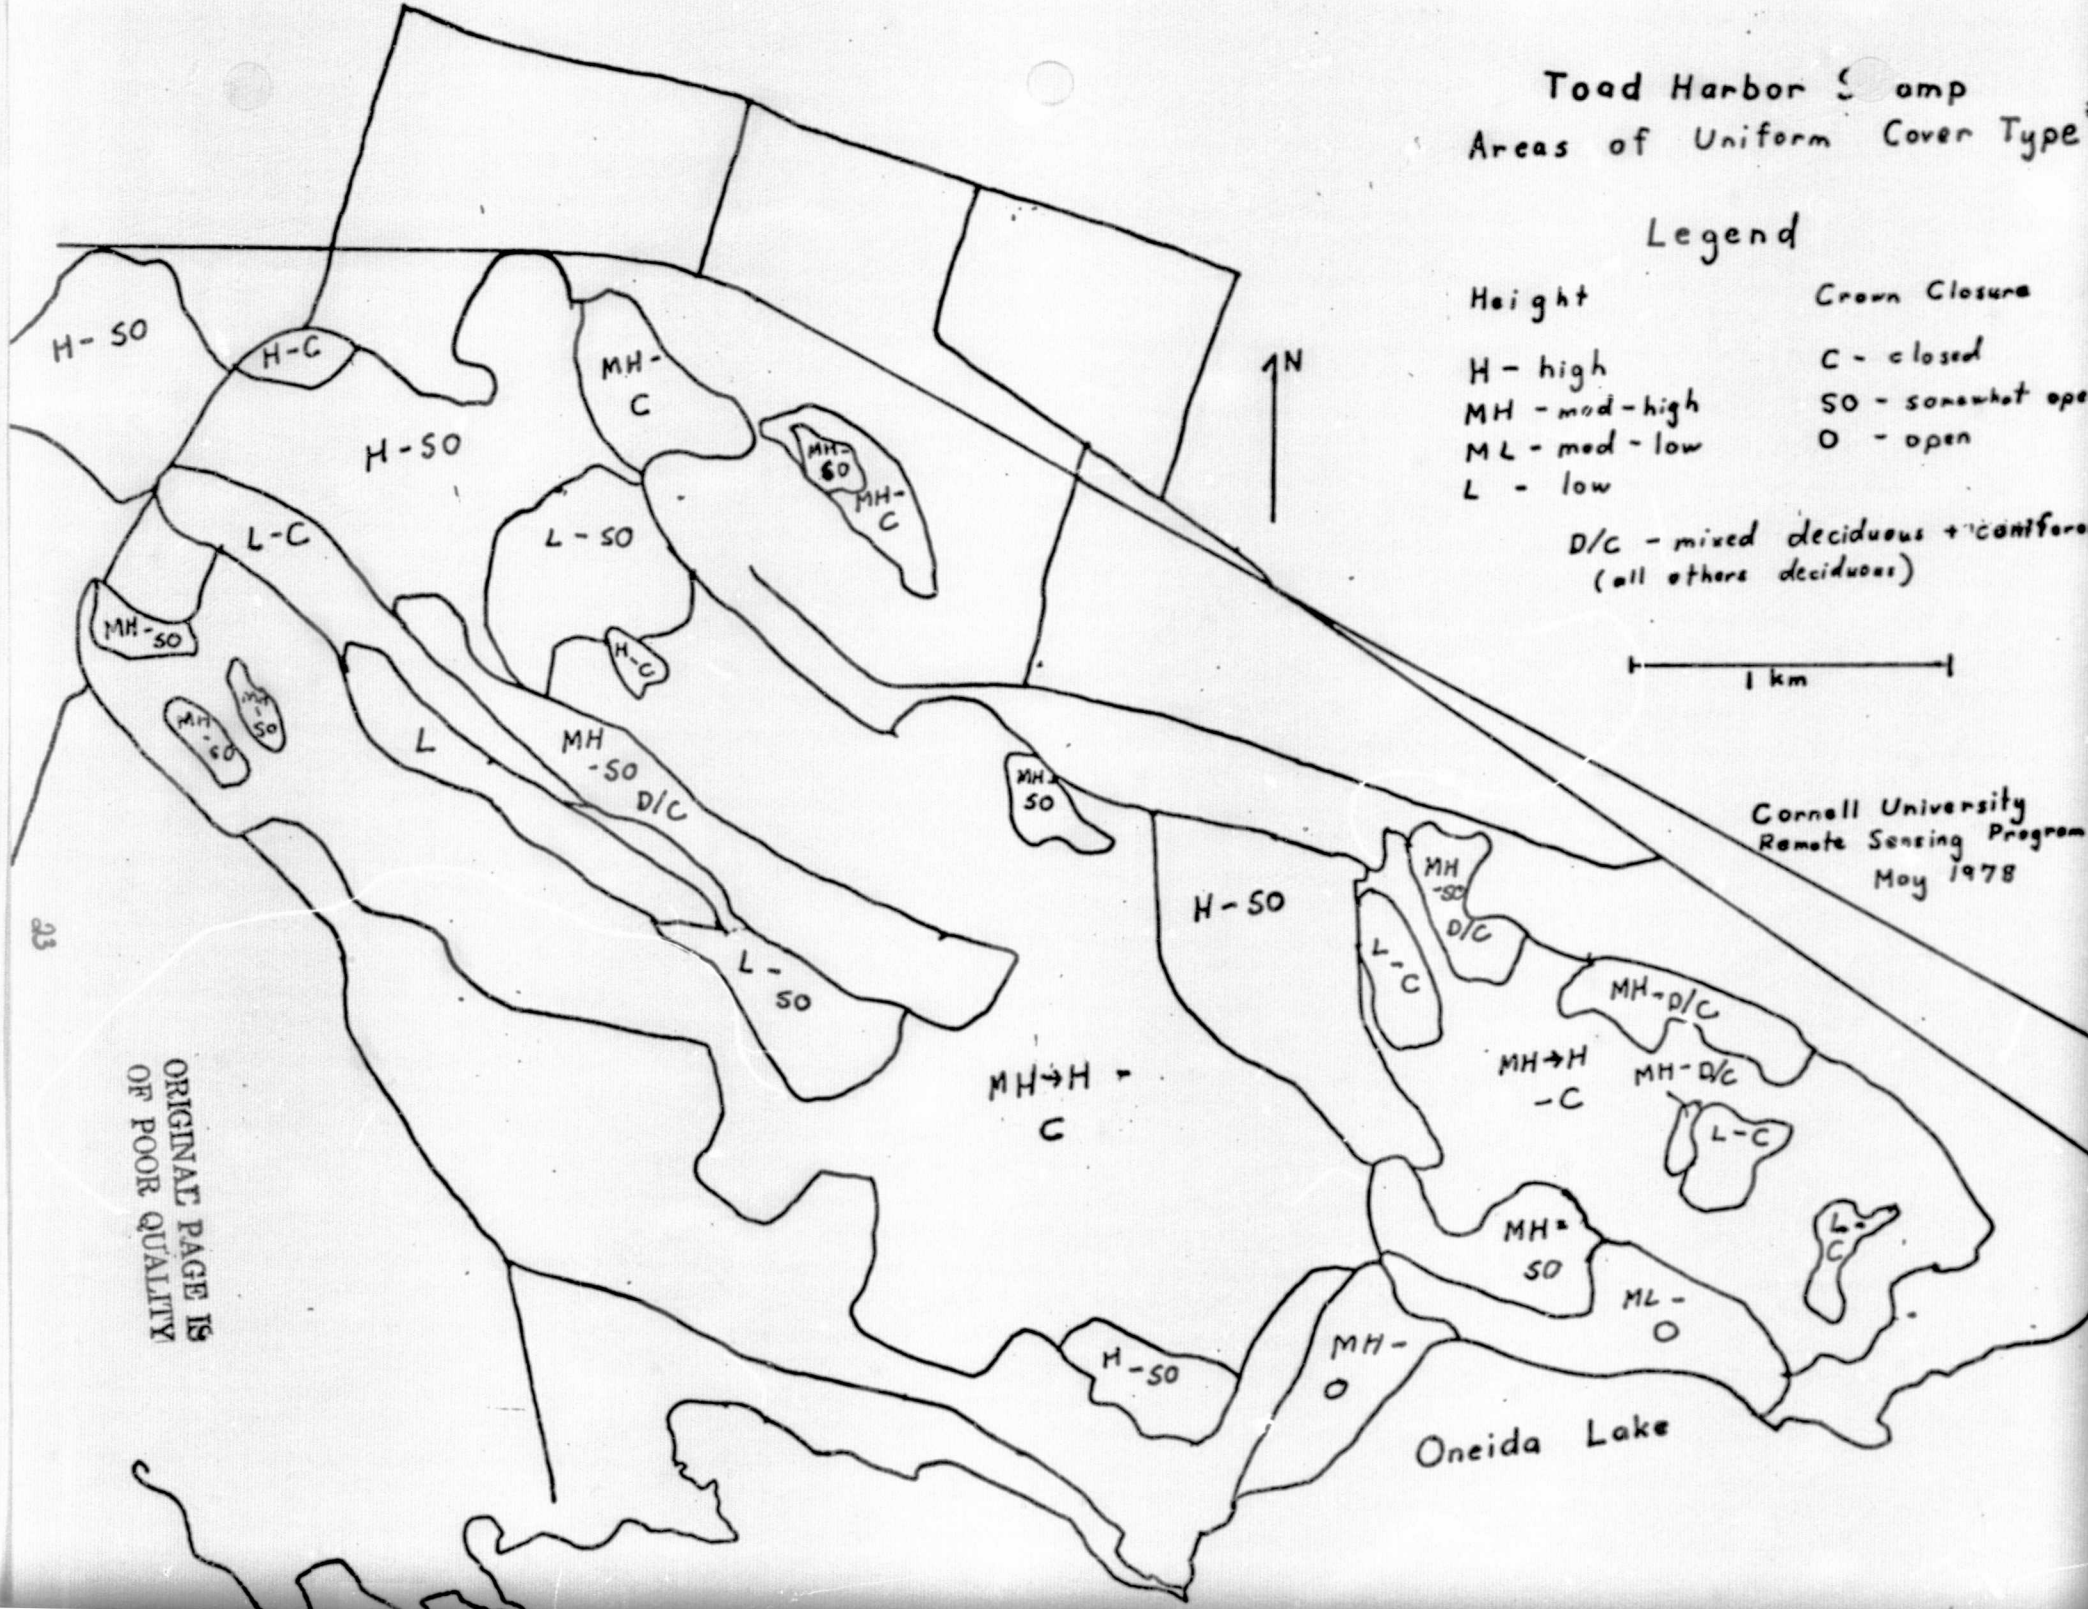 Toad Harbor S amp
Areas of Uniform Cover Type
Legend
Height Crown Closure
H - high C - closed
MH - mod-high SO - somewhat ope
ML - mod-low O - open
L - low
D/C - mixed deciduous + conifero
(all others deciduous)
N
1 km
Cornell University
Remote Sensing Program
May 1978
H-SO
H-C
MH-
C
H-SO
MH-
SO
MH-
C
L-C
L-SO
MH-SO
H-C
MH
-SO
MH
-SO
L
MH
-SO
D/C
MH-
SO
H-SO
MH
-SO
D/C
L-C
L-
SO
MH-D/C
MH→H -
C
MH→H
-C
MH-D/C
L-C
L-
C
MH-
SO
ML-
O
H-SO
MH-
O
Oneida Lake
23
ORIGINAL PAGE IS
OF POOR QUALITY